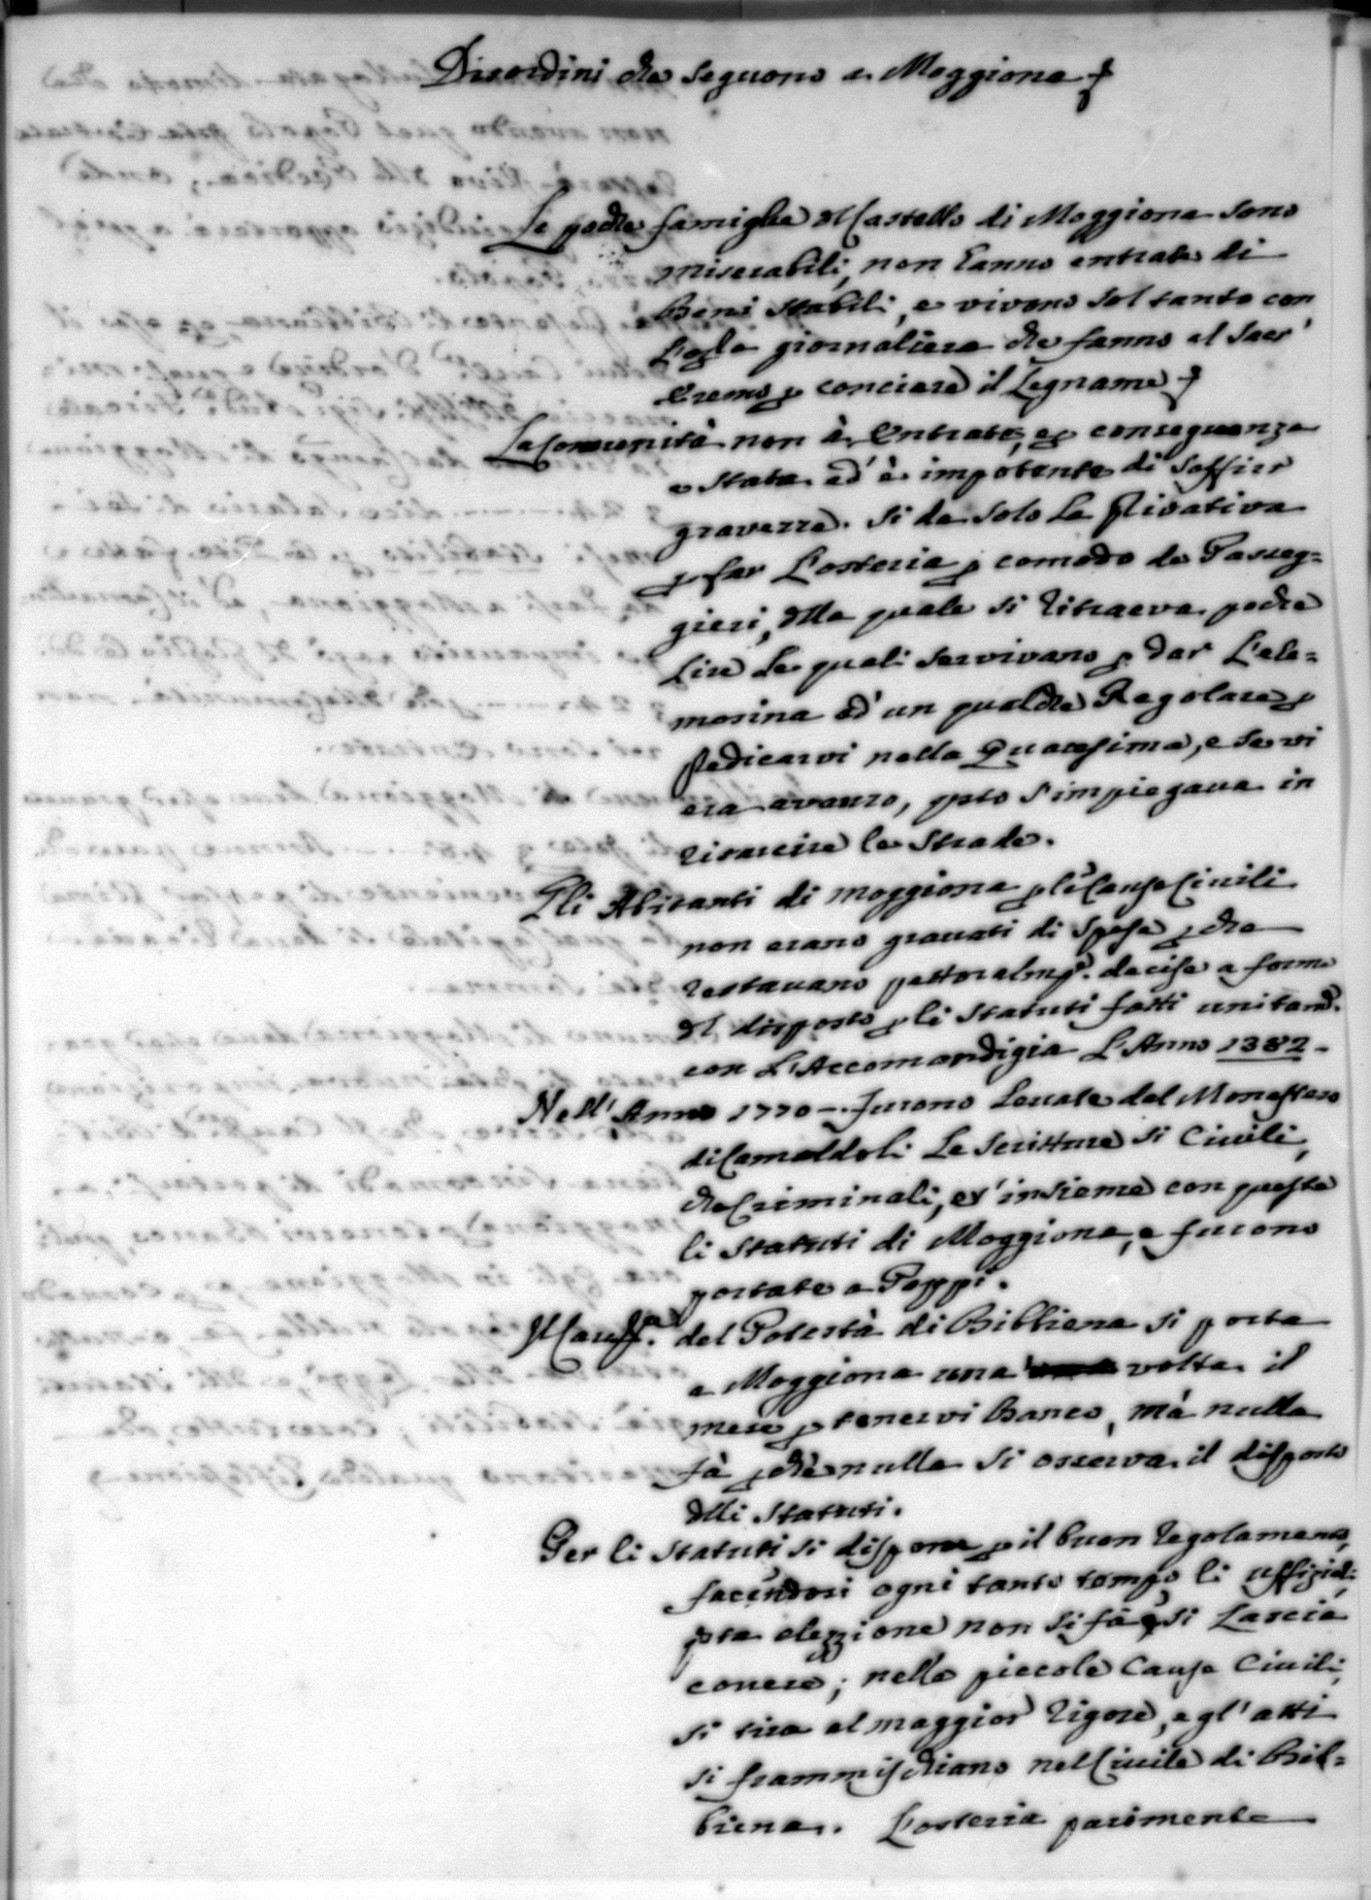 Disordini che seguono a Moggiona
Le poche famiglie del Castello di Moggiona sono
miserabili, non anno entrate di
Beni stabili, e vivono sol tanto con
giornaliera che fanno al Sacr'
Eremo p conciare il Legname
La Comunità non à Entrate, e p conseguenza
e stata ed' è impotente di soffrir
gravezze. Si da solo La Privativa
p far L'osteria p comodo de Passeg=
gieri, dlla quale si ritraeva poche
Lire Le quali servivano p dar L'ele=
mosina ad' un qualche Regolare p
Predicarvi nella Quaresima, e se vi
era avanzo, qsto s'impiegava in
risarcire le strade.
Gli Abitanti di Moggiona p le Cause Civili
non erano gravati di Spese p che
restavano pettoralmte. decise a forma
dl disposto p li Statuti fatti unitamte.
con L'Accomandigia L'Anno 1382 -
Nell' Anno 1770 - furono Levate dal Monastero
di Camaldoli Le Scritture si Civili,
che Criminali, et' insieme con queste
li Statuti di Moggiona, e furono
portate a Poppi.
Il del Potestà di Bibbiena si porta
a Moggiona una volta il
mese p tenervi Banco, mà nulla
fà p che nulla si osserva il disposto
dlli Statuti.
Per li Statuti si dispone p il buon regolamento,
facendosi ogni tanto tempo li uffiziali,
qsta elezzione non si fà e si Lascia
correre; nelle piccole Cause Civili,
si tira al maggior rigore, e gl' atti
si frammischiano nel Civile di Bib=
biena. L'osteria parimente